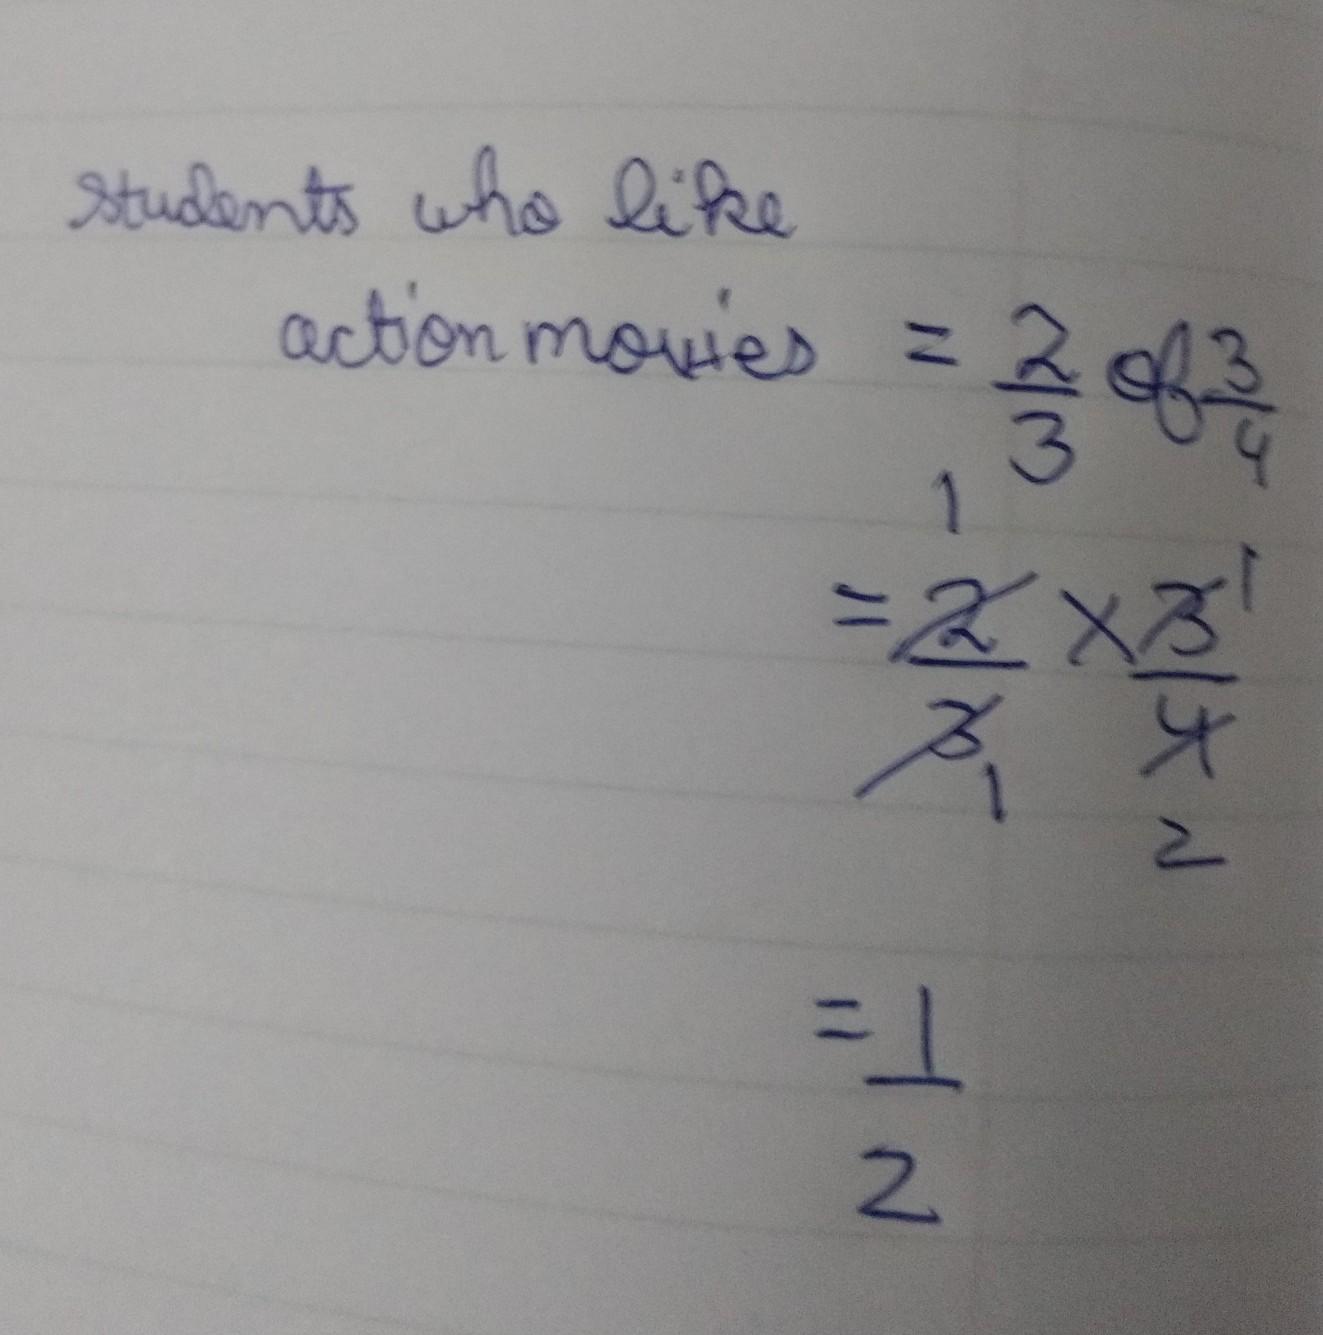 students who like
action movies = 2/3 of 3/4
1
= 2/3 × 3/4 1
1
2
= 1/2